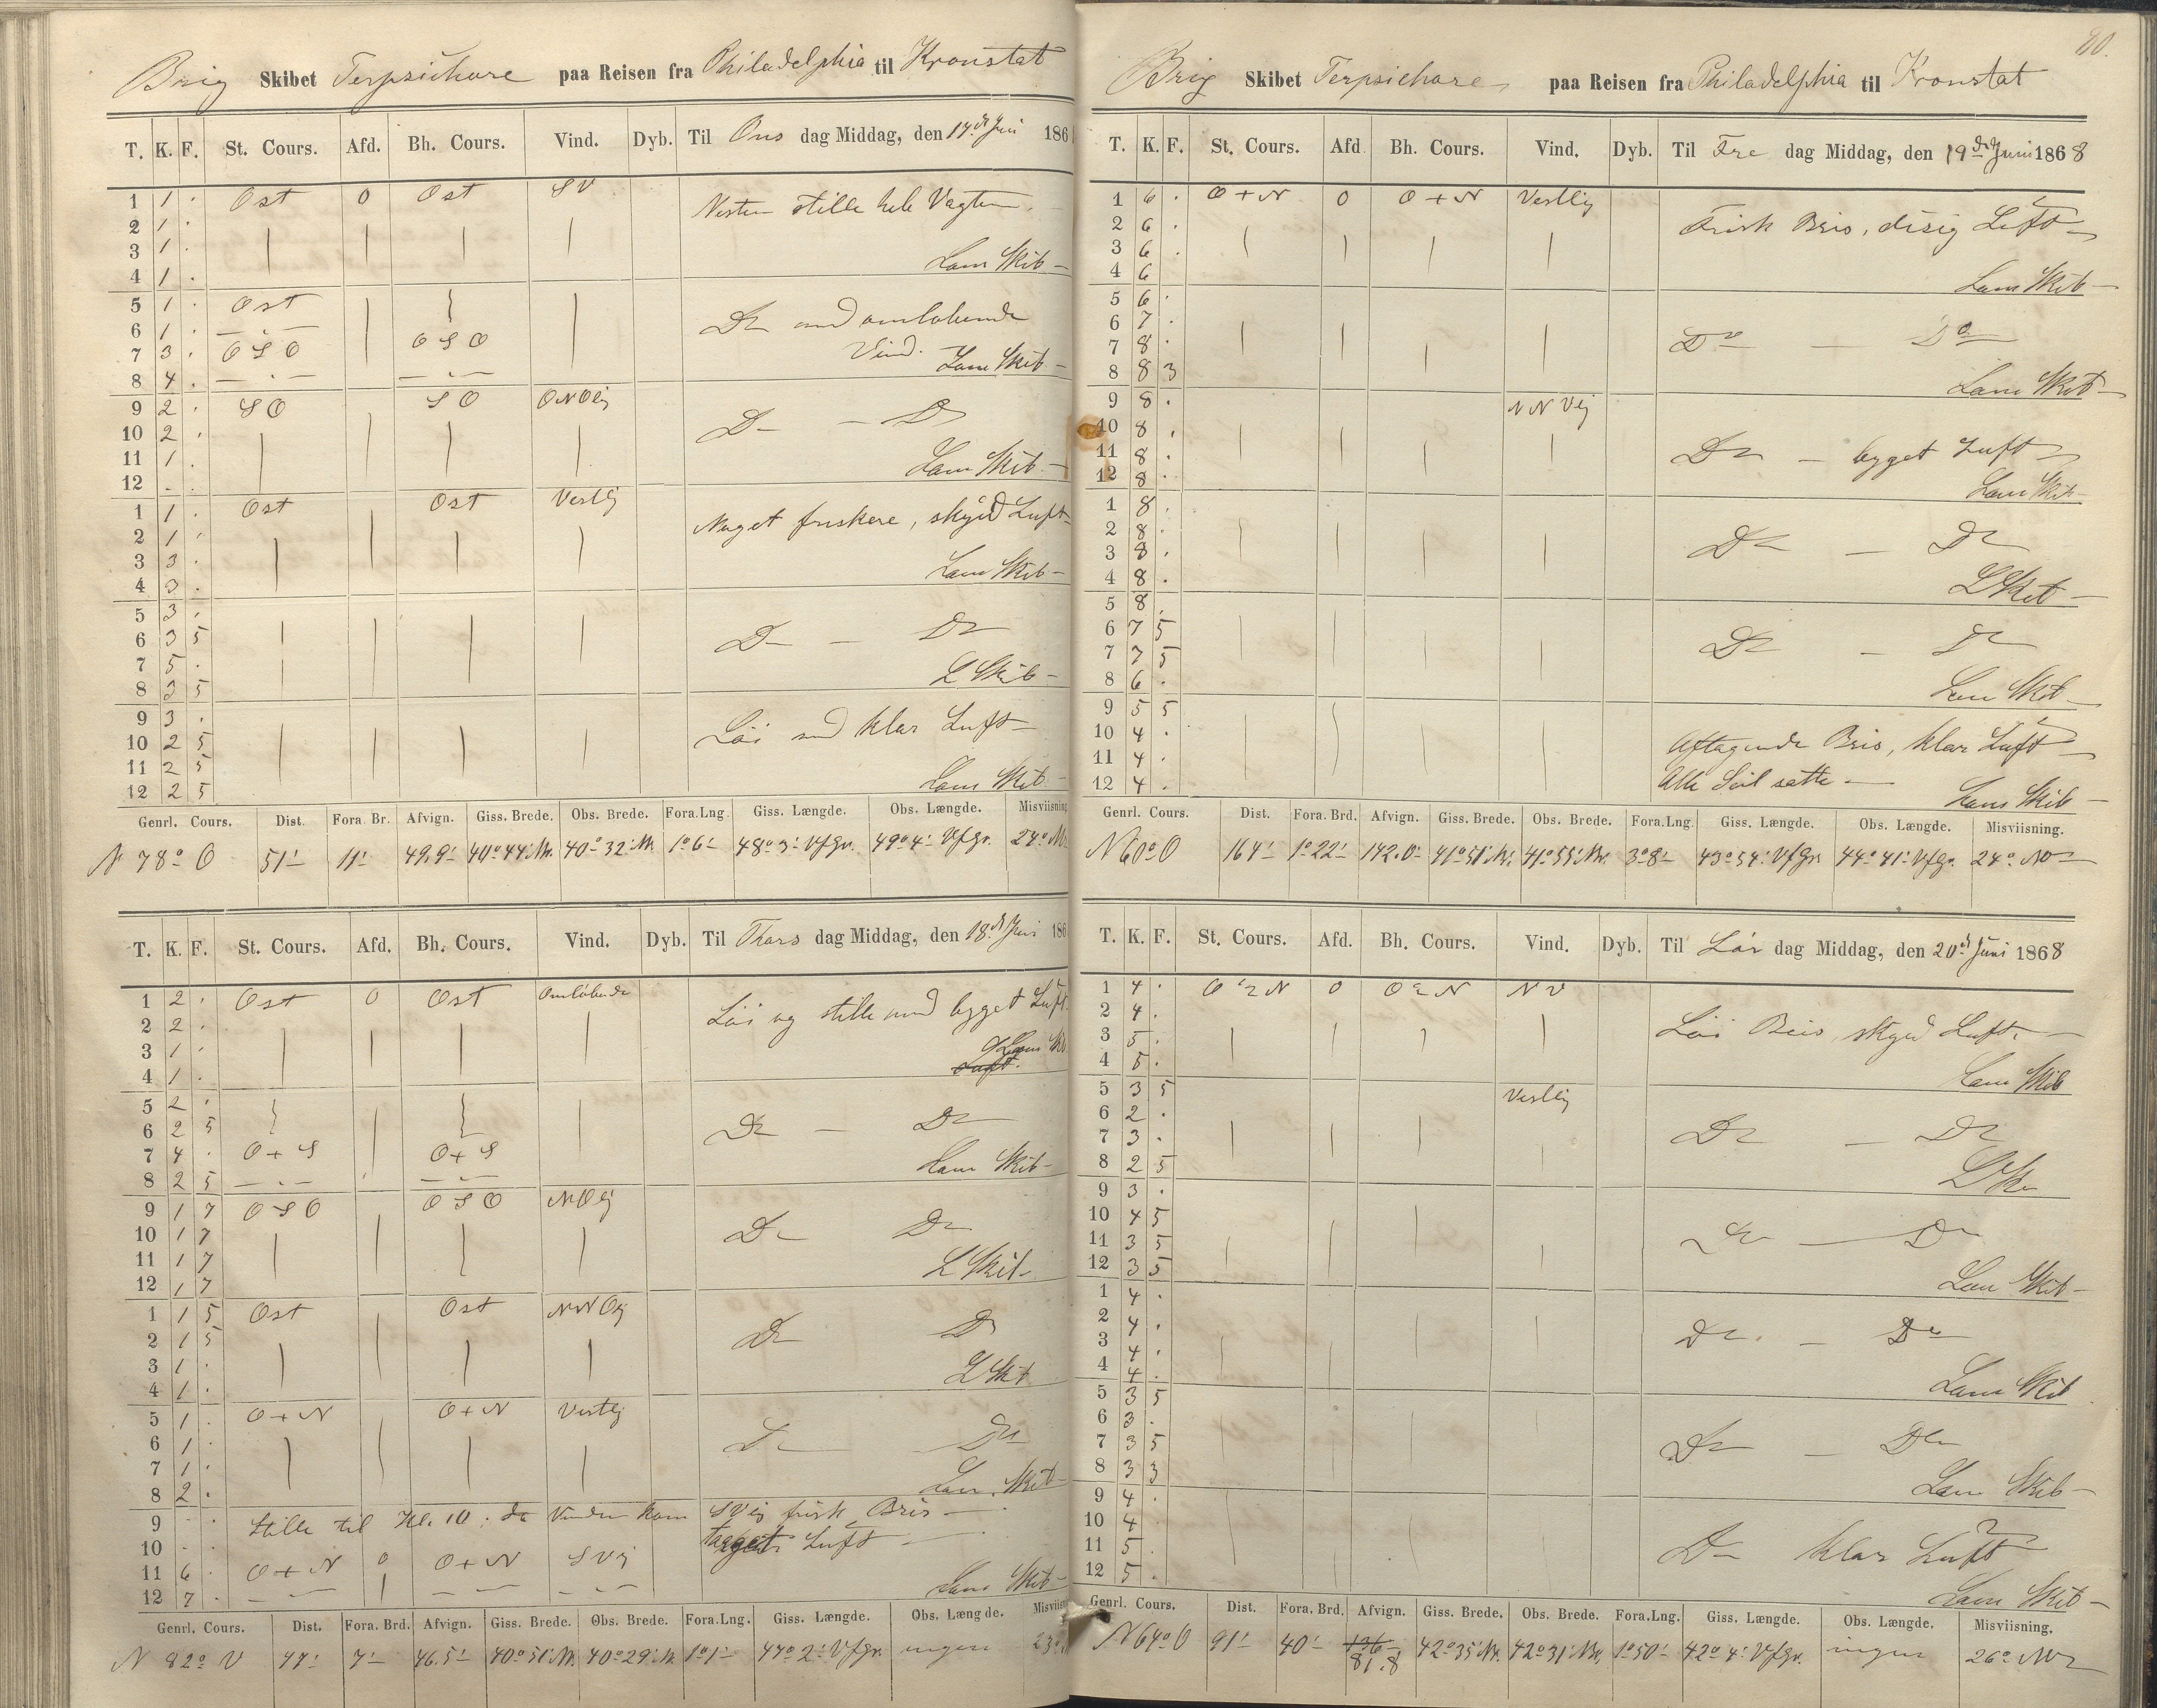 Brig Skibet Terpsichore paa Reisen fra Philadelphia til Kronstat
T. K. F. St. Cours. Afd. Bh. Cours. Vind. Dyb. Til Ons dag Middag, den 17de Juni 186
1 1 . Ost 0 Ost SV Nesten stille hele Vagten.
2 1 .
3 1 . Lens Skib
4 1 .
5 1 . Ost
6 1 . Do med omløbende
7 3 . OSO OSO Vind. Lens Skib
8 4 .
9 2 . SO SO ONOlig
10 2 . Do — Do
11 1 . Lens Skib
12 . .
1 1 . Ost Ost Vestlig Noget friskere, skyed Luft
2 1 .
3 3 . Lens Skib
4 3 .
5 3 .
6 3 5 Do — Do
7 5 .
8 3 5 L Skib
9 3 . Löi med klar Luft
10 2 5
11 2 5
12 2 5 Lens Skib
Genrl. Cours. Dist. Fora Br. Afvign. Giss. Brede. Obs. Brede. Fora.Lng. Giss. Længde. Obs. Længde. Misviisning
N 78° O 51' 11' 49,9' 40°44' N. 40°32' N. 1°6' 48°3' VfGr. 49°4' VfGr. 24° NV
T. K. F. St. Cours. Afd. Bh. Cours. Vind. Dyb. Til Thors dag Middag, den 18de Juni 186
1 2 . Ost 0 Ost Omløbende Löi og stille med bygget Luft.
2 2 .
3 1 . Lens Skib
4 1 . Luft.
5 2 .
6 2 5 Do — Do
7 4 . O+S O+S
8 2 5 Lens Skib
9 1 7 OSO OSO NOlig
10 1 7 Do Do
11 1 7
12 1 7 L Skib
1 1 5 Ost Ost NNOlig
2 1 5 Do Do
3 1 .
4 1 . L Skib
5 1 . O+N O+N Vestlig
6 1 . Do Do
7 1 .
8 2 . Lens Skib
9 . . Stille til Kl. 10, da Vinden kom SVlig frisk Bris
10 . . bygget Luft
11 6 . O+N 0 O+N SVlig
12 7 . Lens Skib
Genrl. Cours. Dist. Fora. Brd. Afvign. Giss. Brede. Obs. Brede. Fora.Lng. Giss. Længde. Obs. Længde. Misviisn
N 82° V 47' 7' 46,5' 40°51' N. 40°29' N 1°1' 47°2' VfGr. ingen 23°
80.
Brig Skibet Terpsichore paa Reisen fra Philadelphia til Kronstat
T. K. F. St. Cours. Afd Bh. Cours. Vind. Dyb. Til Fre dag Middag, den 19de Juni 1868
1 6 . O+N 0 O+N Vestlig
2 6 . Frisk Bris, disig Luft
3 6 .
4 6 Lens Skib
5 6 .
6 7 . Do — Do
7 8 .
8 8 3 Lens Skib
9 8 . NNVlig
10 8 .
11 8 . Do — bygget Luft
12 8 . Lens Skib
1 8 .
2 8 .
3 8 . Do — Do
4 8 . L Skib
5 8 .
6 7 5 Do — Do
7 7 5
8 6 . Lens Skib
9 5 5
10 4 . Aftagende Bris, klar Luft
11 4 . Alle Seil satte
12 4 . Lens Skib
Genrl. Cours. Dist. Fora. Brd. Afvign. Giss. Brede. Obs. Brede. Fora.Lng. Giss. Længde. Obs. Længde. Misviisning.
N 60° O 164' 1°22' 142.0' 41°51' N. 41°55' N. 3°8' 43°54' VfGr 44°41' VfGr. 24° NV
T. K. F. St. Cours. Afd. Bh. Cours. Vind. Dyb. Til Lör dag Middag, den 20de Juni 1868
1 4 . O ½ N 0 O ½ N NV
2 4 . Löi Bris, skyed Luft.
3 5 .
4 5 . Lens Skib
5 3 5 Vestlig
6 2 .
7 3 . Do — Do
8 2 5 L Sk
9 3 .
10 4 5
11 3 5 Do — Do
12 3 5 Lens Skib
1 4 .
2 4 .
3 4 . Do — Do
4 4 . Lens Skib
5 3 5
6 3 .
7 3 5 Do — Do
8 3 3 Lens Skib
9 4 .
10 4 .
11 5 . Do klar Luft
12 5 . Lens Skib
Genrl. Cours. Dist. Fora. Brd. Afvign. Giss. Brede. Obs. Brede. Fora.Lng. Giss. Længde. Obs. Længde. Misviisning.
N 64° O 91' 40' 136 81.8 42°35' N. 42°31' N. 1°50' 42°4' VfGr. ingen 26° NV